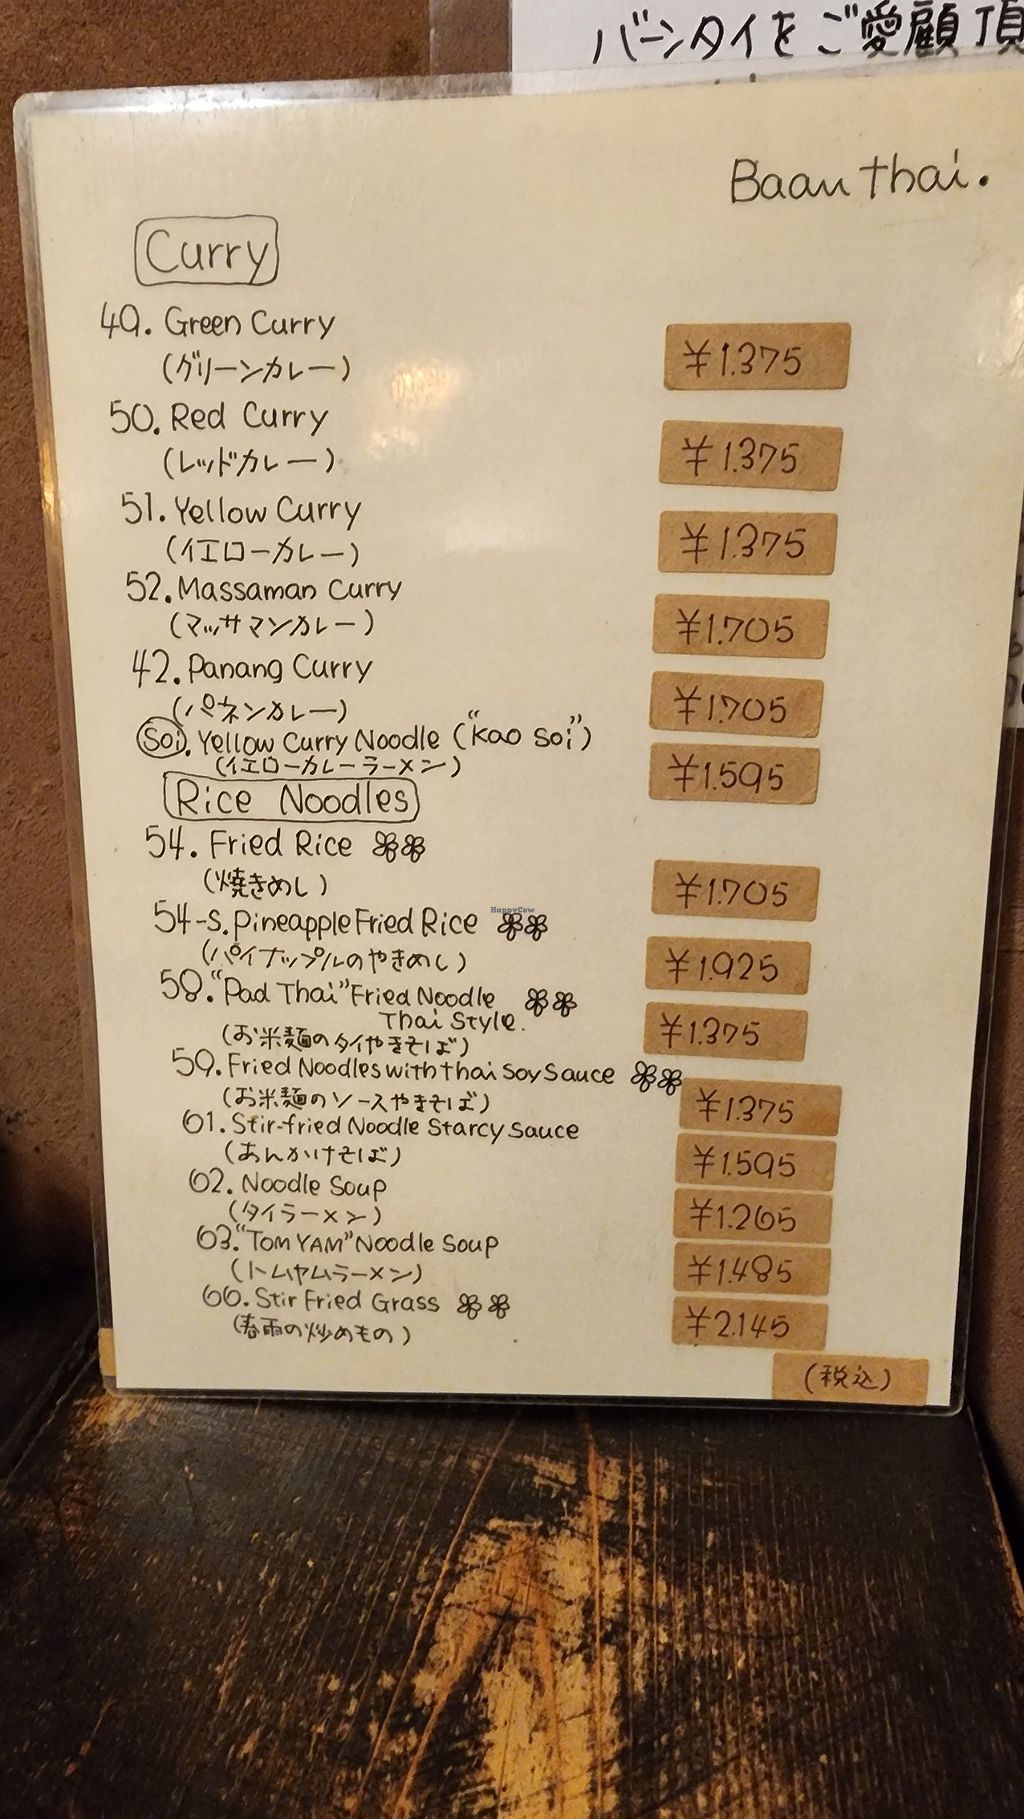 バーンタイをご愛顧頂
Baan thai.
Curry
49. Green Curry
(グリーンカレー)
¥1.375
50. Red Curry
(レッドカレー)
¥1.375
51. Yellow Curry
(イエローカレー)
¥1.375
52. Massaman Curry
(マッサマンカレー)
¥1.705
42. Panang Curry
(パネンカレー)
¥1.705
Soi. Yellow Curry Noodle ("Kao Soi")
(イエローカレーラーメン)
¥1.595
Rice Noodles
54. Fried Rice
(焼きめし)
¥1.705
54-S. Pineapple Fried Rice
(パイナップルのやきめし)
¥1.925
58. "Pad Thai" Fried Noodle
Thai Style.
(お米麺のタイやきそば)
¥1.375
59. Fried Noodles with thai Soy Sauce
(お米麺のソースやきそば)
¥1.375
61. Stir-fried Noodle Starcy Sauce
(あんかけそば)
¥1.595
62. Noodle Soup
(タイラーメン)
¥1.265
63. "TOM YAM" Noodle Soup
(トムヤムラーメン)
¥1.485
66. Stir Fried Grass
(春雨の炒めもの)
¥2.145
(税込)
HappyCow